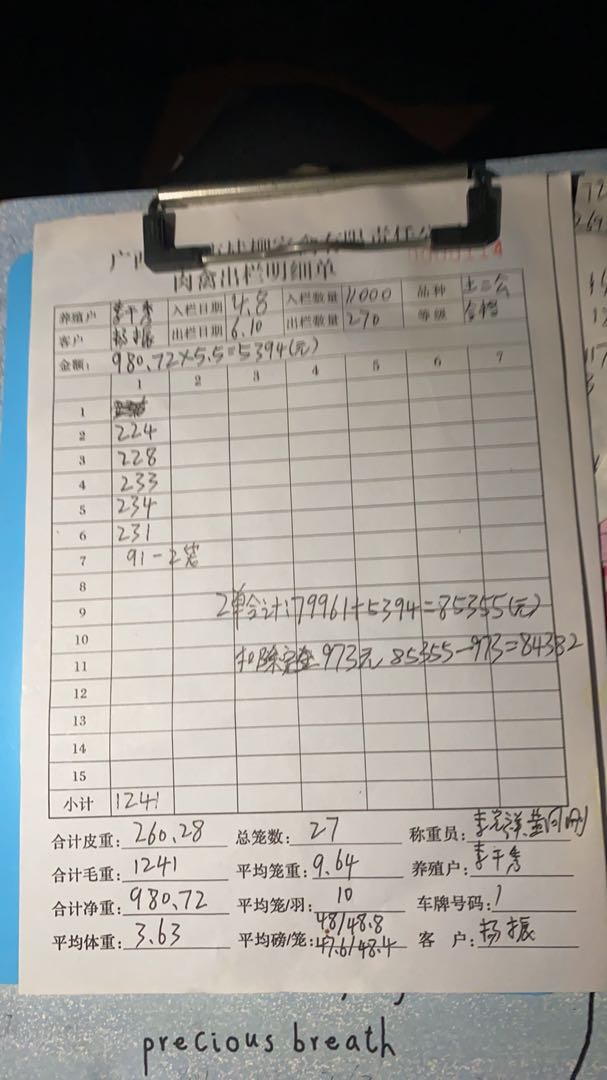 广
家禽有限责任公
0000114
肉禽出栏明细单
养殖户 李千秀 入栏日期 4.8 入栏数量 11000 品种 土二公
客户 杨振 出栏日期 6.10 出栏数量 270 等级 合格
金额: 980.72×5.5=5394(元)
1 2 3 4 5 6 7
1
2 224
3 228
4 233
5 234
6 231
7 91-2笼
8
9 2单合计:79961+5394=85355(元)
10
11 扣除 973元 85355-973=84382
12
13
14
15
小计 1241
合计皮重: 260.28 总笼数: 27 称重员:
合计毛重: 1241 平均笼重: 9.64 养殖户: 李千秀
合计净重: 980.72 平均笼/羽: 10 车牌号码: 1
平均体重: 3.63 平均磅/笼: 48/48.8 47.6/48.4 客 户: 杨振
precious breath